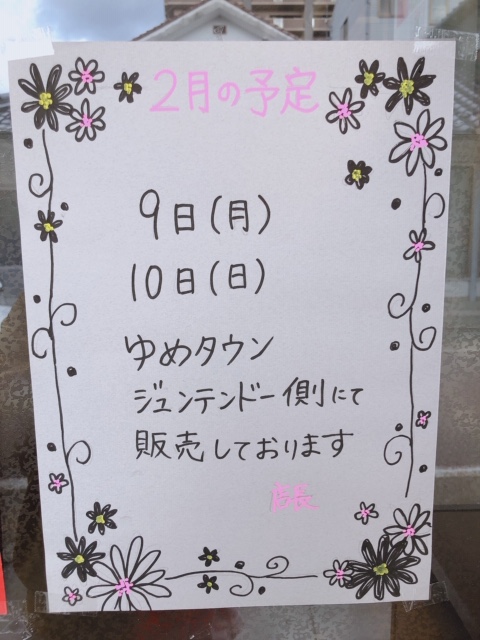 2月の予定
9日(月)
10日(日)
ゆめタウン
ジュンテンドー側にて
販売しております
店長